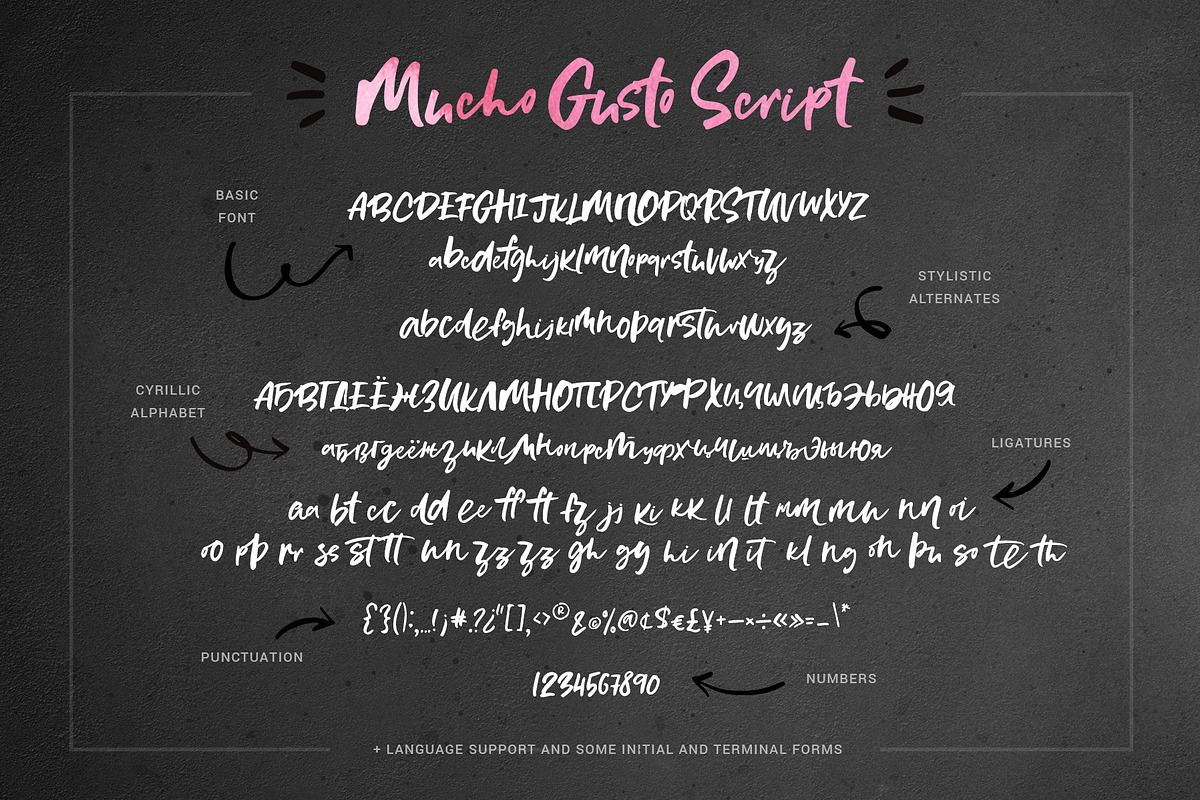 Mucho Gusto Script
BASIC
FONT
ABCDEFGHIJKLMNOPQRSTUVWXYZ
abcdefghijklmnopqrstuvwxyz
STYLISTIC
ALTERNATES
abcdefghijklmnopqrstuvwxyz
CYRILLIC
ALPHABET
АБВГДЕЁЖЗИКЛМНОПРСТУФХЦЧШЩЪЭЬЫЮЯ
абвгдеёжзиклмнопрстуфхцчшщъэьыюя
LIGATURES
aa bt cc dd ee ff ft fz jj ki kk ll lt mm mu nn oi
oo pp rr ss st tt un zz zz gh gy hi in it kl ng oh pu so te th
PUNCTUATION
{}():;,...!¡#.?¿"[],<>®&©%@¢$€£¥+−×÷«»=_\*
1234567890
NUMBERS
+ LANGUAGE SUPPORT AND SOME INITIAL AND TERMINAL FORMS